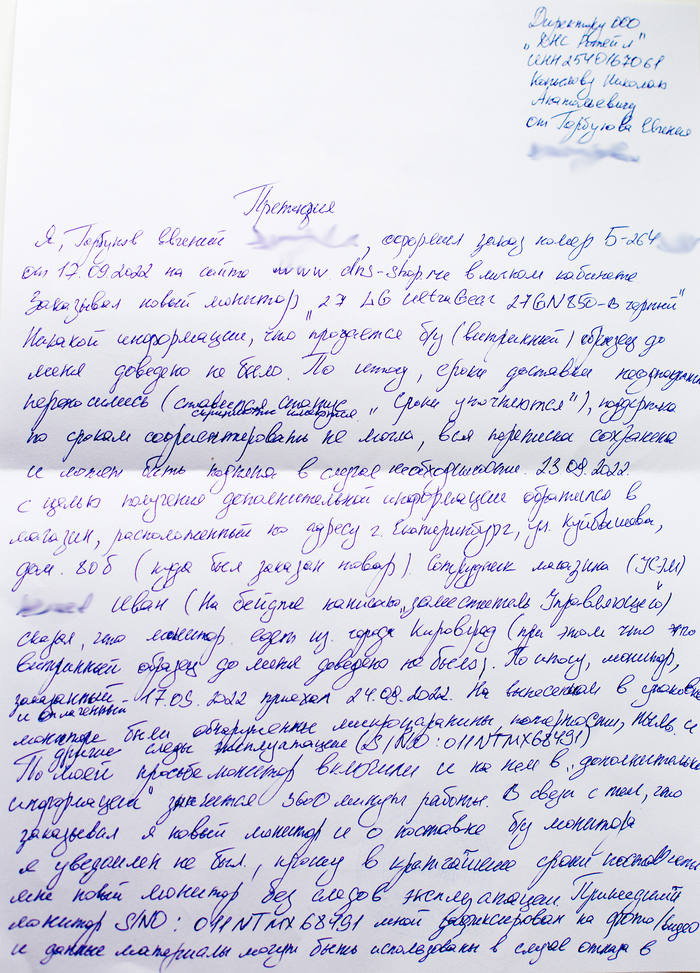 Директору ООО
„ДНС Ритейл"
ИНН 2540167061
Николаю
Анатольевичу
от Горбунова Евгения
Претензия
Я, Горбунов Евгений , оформил заказ номер Б-264
от 17.09.2022 на сайте www dns-shop.ru в личном кабинете.
Заказывал новый монитор „27 LG UltraGear 27GN850-B черный"
Никакой информации, что продается б/у (витринный) образец до
меня доведено не было. По итогу, сроки доставки неоднократно
переносились (ставился статус „сроки уточняются"), поддержка
скриншоты имеются.
по срокам сориентировать не могла, вся переписка сохранена
и может быть поднята в случае необходимости. 23.09.2022.
с целью получения дополнительной информации обратился в
магазин, расположенный по адресу г. Екатеринбург, ул. Куйбышева,
дом. 80б (куда был заказан товар). Сотрудник магазина (УЭМ)
Иван (На бейдже написано „заместитель Управляющей)
сказал, что монитор едет из города Кировград (при этом что это
витринный образец до меня доведено не было). По итогу, монитор,
заказанный 17.09.2022 приехал 24.09.2022. На вынесенном в упаковке
и оплаченный
мониторе были обнаружены микроцарапины, потертости, пыль и
другие следы эксплуатации (S/NO: 011NTMX68791)
По моей просьбе монитор включили и на нем в „дополнительной
информации" значится 3600 минут работы. В связи с тем, что
заказывал я новый монитор и о поставке б/у монитора
я уведомлен не был, прошу в кратчайшие сроки поставить
мне новый монитор без следов эксплуатации. Пришедший
монитор S/NO: 011NTMX68791 мной зафиксирован на фото/видео
и данные материалы могут быть использованы в случае отказа в